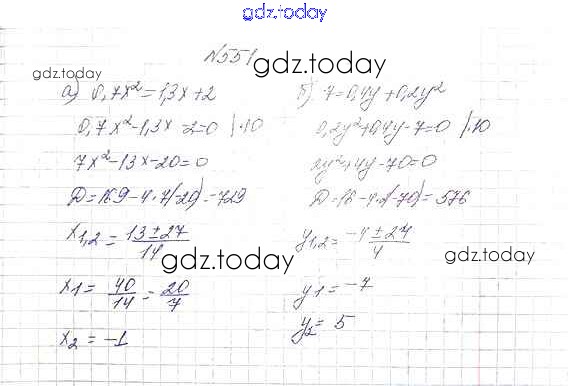 gdz.today
№551
gdz.today
gdz.today
а) 0,7x² = 1,3x + 2
0,7x² - 1,3x - 2 = 0 |·10
7x² - 13x - 20 = 0
D = 169 - 4·7(-20) = 729
x₁,₂ = (13 ± 27)/14
x₁ = 40/14 = 20/7
x₂ = -1
б) 7 = 0,4y + 0,2y²
0,2y² + 0,4y - 7 = 0 |·10
2y² + 4y - 70 = 0
D = 16 - 4·2(-70) = 576
y₁,₂ = (-4 ± 24)/4
y₁ = -7
y₂ = 5
gdz.today
gdz.today